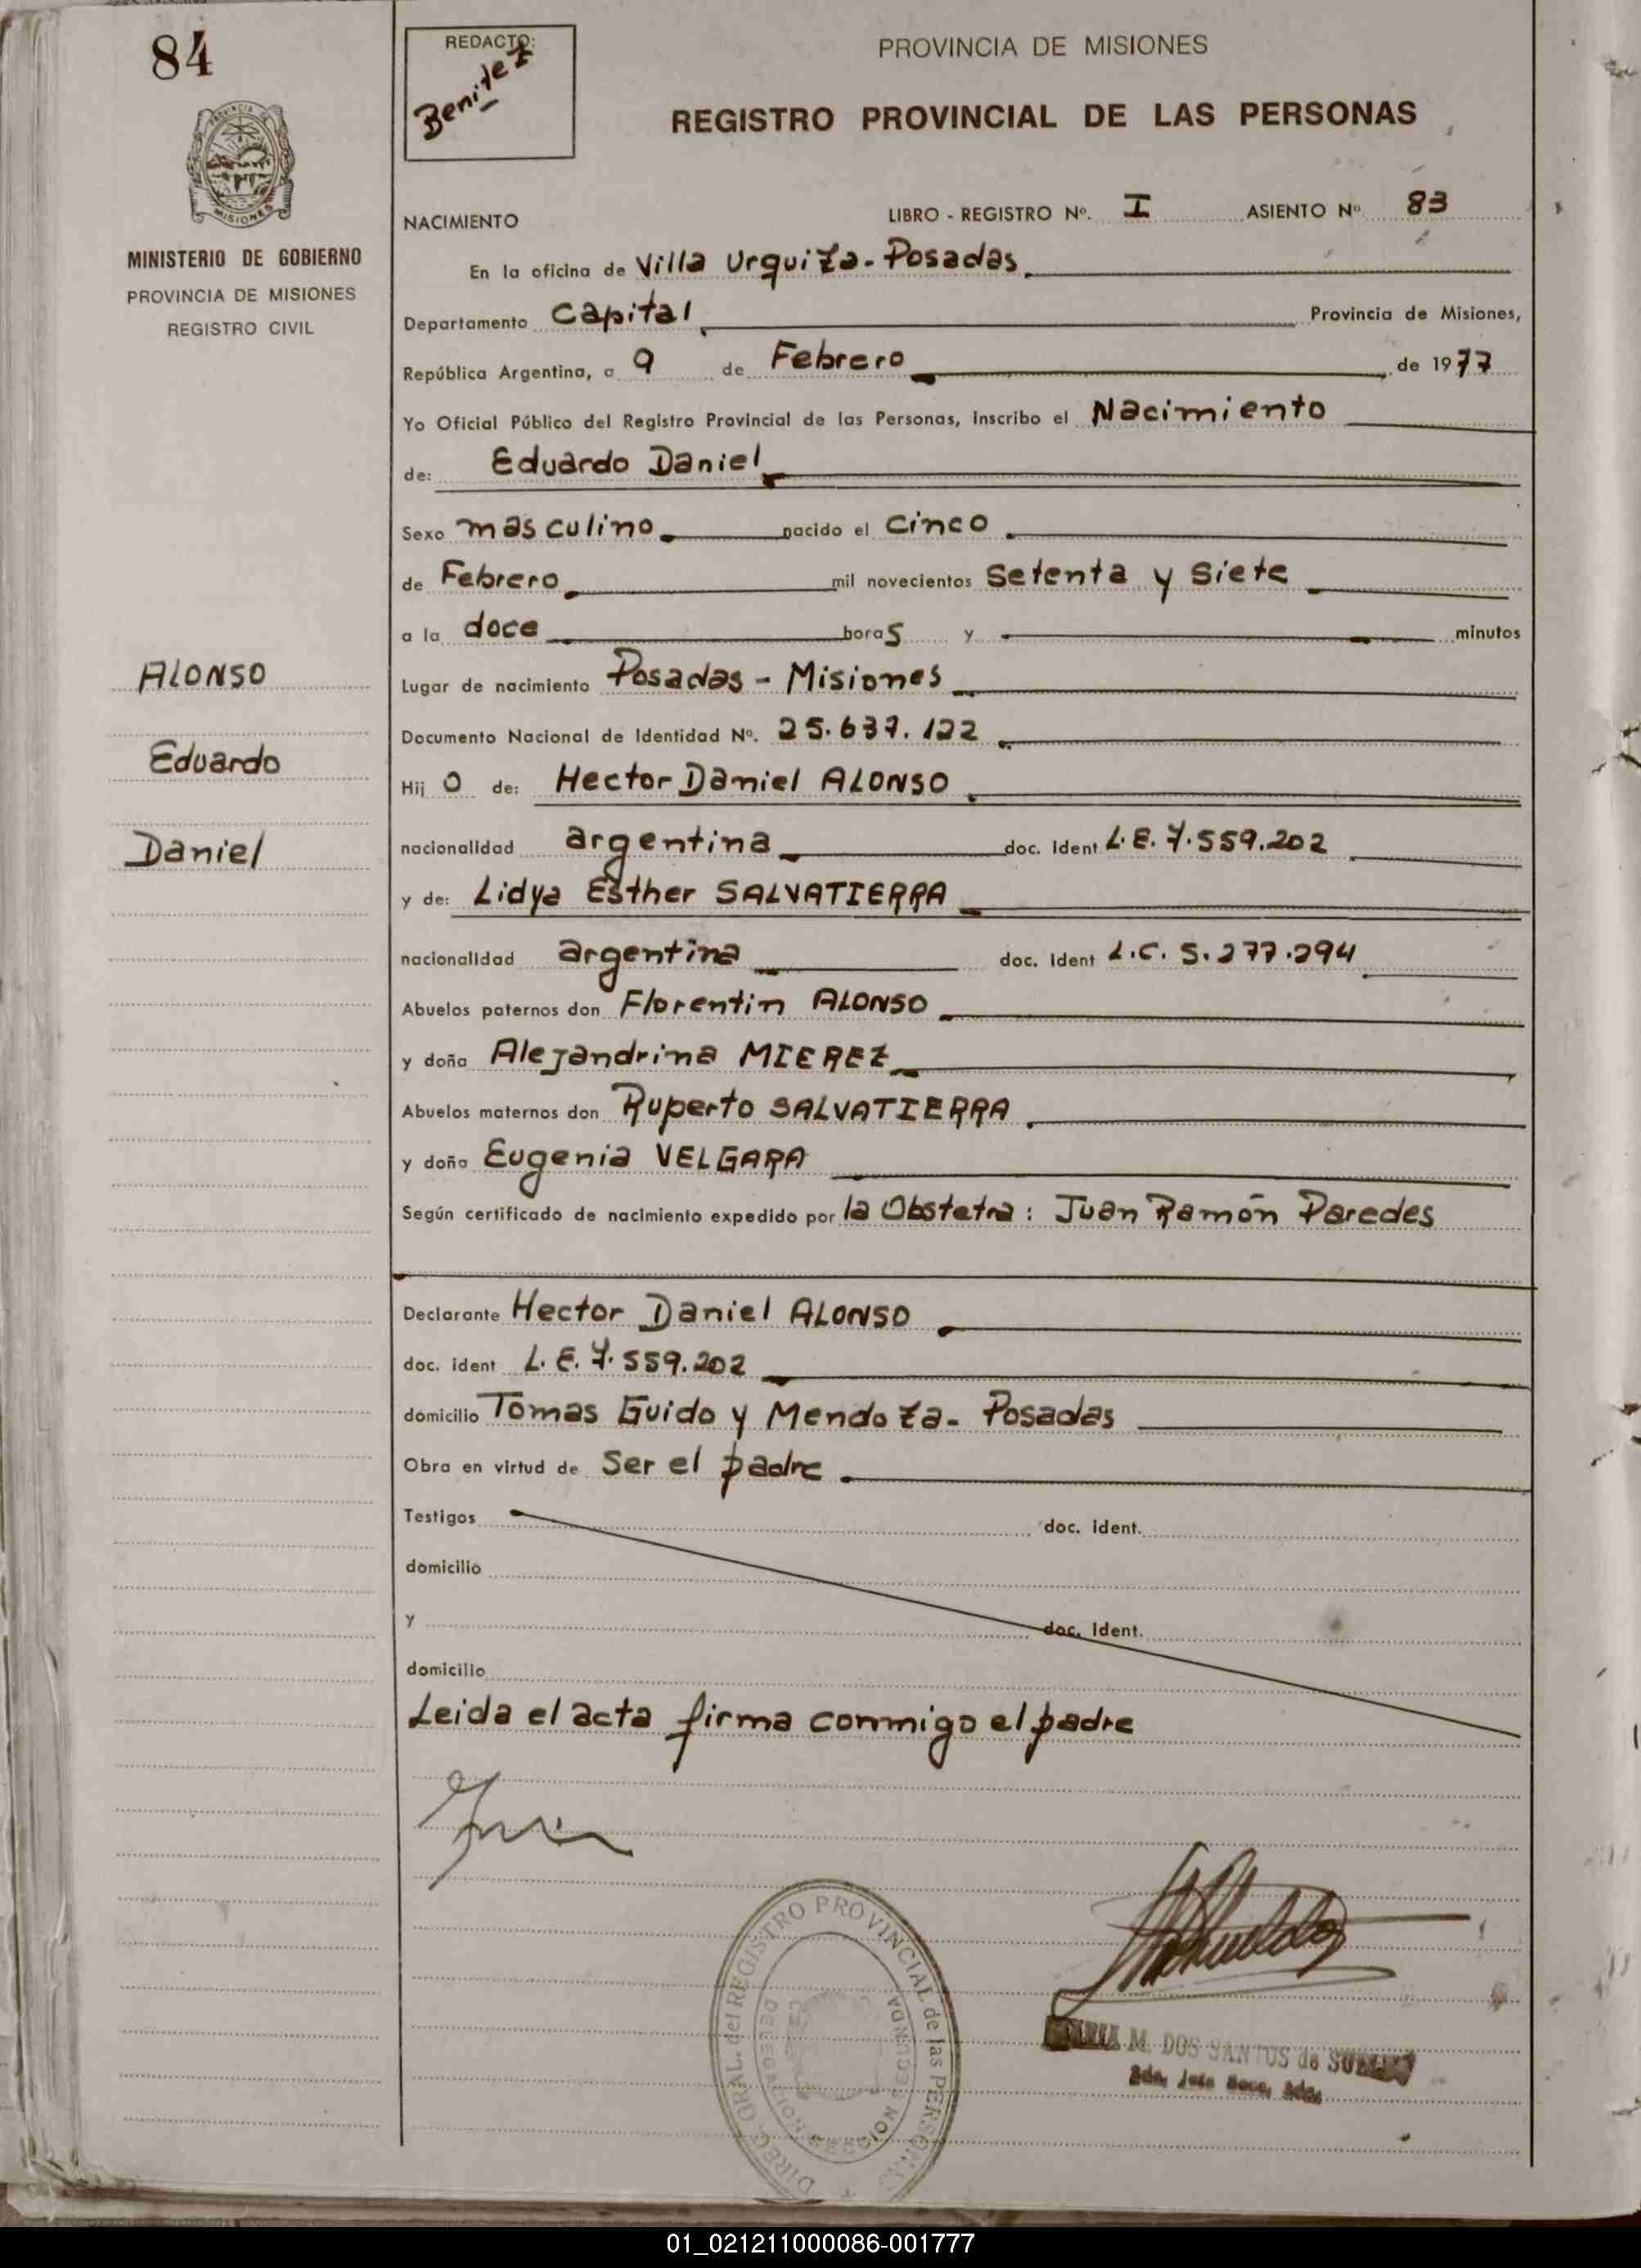 84
REDACTO:
Benitez
PROVINCIA DE MISIONES
REGISTRO PROVINCIAL DE LAS PERSONAS
PROVINCIA DE
MISIONES
MINISTERIO DE GOBIERNO
PROVINCIA DE MISIONES
REGISTRO CIVIL
NACIMIENTO
LIBRO - REGISTRO Nº. I ASIENTO Nº. 83
En la oficina de Villa Urquiza - Posadas
Departamento Capital Provincia de Misiones,
República Argentina, a 9 de Febrero de 1977
Yo Oficial Público del Registro Provincial de las Personas, inscribo el Nacimiento
de: Eduardo Daniel
Sexo masculino nacido el cinco
de Febrero mil novecientos setenta y siete
a la doce horas y minutos
Lugar de nacimiento Posadas - Misiones
Documento Nacional de Identidad Nº. 25.637.122
Hijo de: Hector Daniel ALONSO
nacionalidad argentina doc. Ident L.E. 7.559.202
y de: Lidya Esther SALVATIERRA
nacionalidad argentina doc. Ident L.C. 5.277.294
Abuelos paternos don Florentin ALONSO
y doña Alejandrina MIEREZ
Abuelos maternos don Ruperto SALVATIERRA
y doña Eugenia VELGARA
Según certificado de nacimiento expedido por la Obstetra: Juan Ramón Paredes
Declarante Hector Daniel ALONSO
doc. ident L.E. 7.559.202
domicilio Tomas Guido y Mendoza - Posadas
Obra en virtud de Ser el padre
Testigos doc. ident.
domicilio
y doc. Ident.
domicilio
Leida el acta firma conmigo el padre
ALONSO
Eduardo
Daniel
DIREC. GRAL. del REGISTRO PROVINCIAL de las PERSONAS
SECCION SEGUNDA
M. DOS SANTOS de
01_021211000086-001777